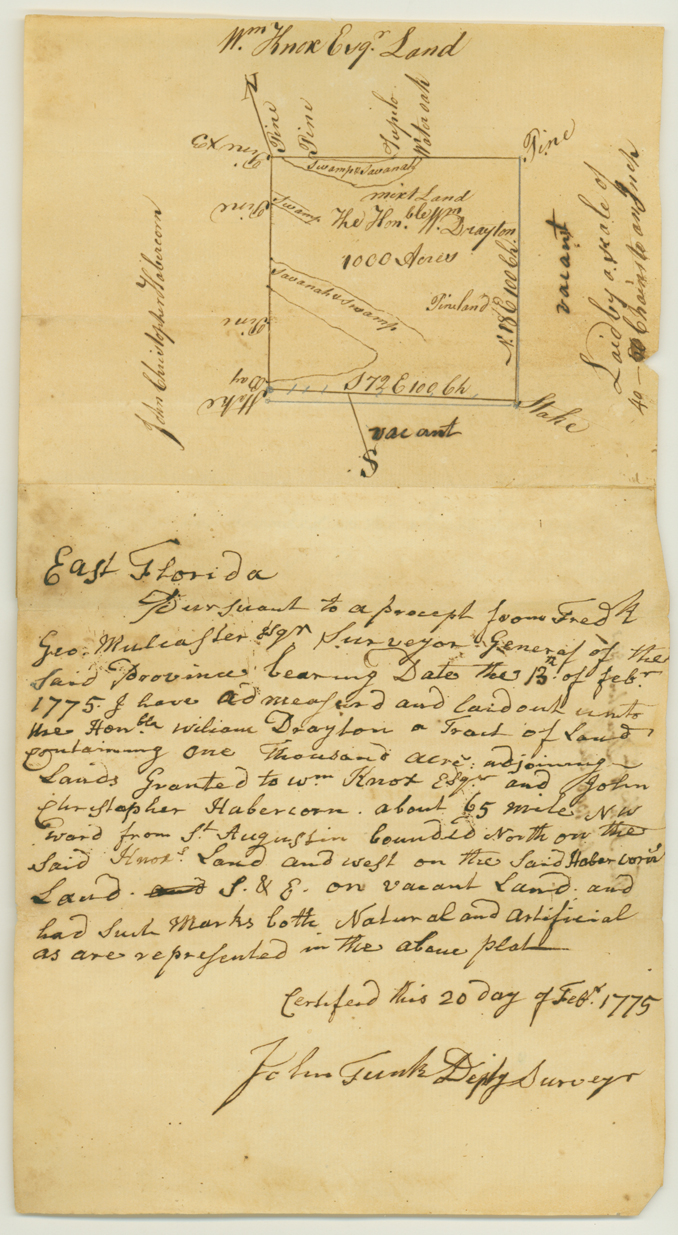 Wm Knox Esqr Land
N
Pine
Pine
Tupilo
Water oak
Pine XE
Pine
Swamp & Savanah
mixt Land
Swamp
Pine
The Honble Wm Drayton
1000 Acres
vacant
John Christopher Habercorn
Savanah & Swamp
Pineland
N. 18 E 100 Ch.
Laid by a scale of
40 Chains to an Inch
Pine
Bay
Stake
S 72 E 100 Ch
Stake
vacant
S
East Florida
Pursuant to a precept from Fredk
Geo. Mulcaster Esqr Surveyor General of the
said Province bearing Date the 13th of Febr
1775. I have admeasurd and laid out unto
the Honble William Drayton a Tract of Land
Containing one thousand acre: adjoining
Lands Granted to Wm Knox Esqr and John
Christopher Habercorn. about 65 mile NW
ward from St Augustin bounded North on the
said Knoxs Land and west on the said Habercorn's
Land. and S. & E. on vacant Land. and
had such Marks both Natural and artificial
as are represented in the above plat
Certifeid this 20 day of Febr. 1775
John Funk Depty Surveyr